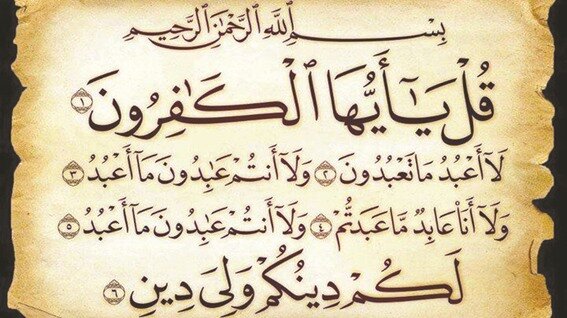 بِسْمِ ٱللَّهِ ٱلرَّحْمَٰنِ ٱلرَّحِيمِ
قُلْ يَٰٓأَيُّهَا ٱلْكَٰفِرُونَ ١
لَآ أَعْبُدُ مَا تَعْبُدُونَ ٢ وَلَآ أَنتُمْ عَٰبِدُونَ مَآ أَعْبُدُ ٣
وَلَآ أَنَا۠ عَابِدٌ مَّا عَبَدتُّمْ ٤ وَلَآ أَنتُمْ عَٰبِدُونَ مَآ أَعْبُدُ ٥
لَكُمْ دِينُكُمْ وَلِىَ دِينِ ٦